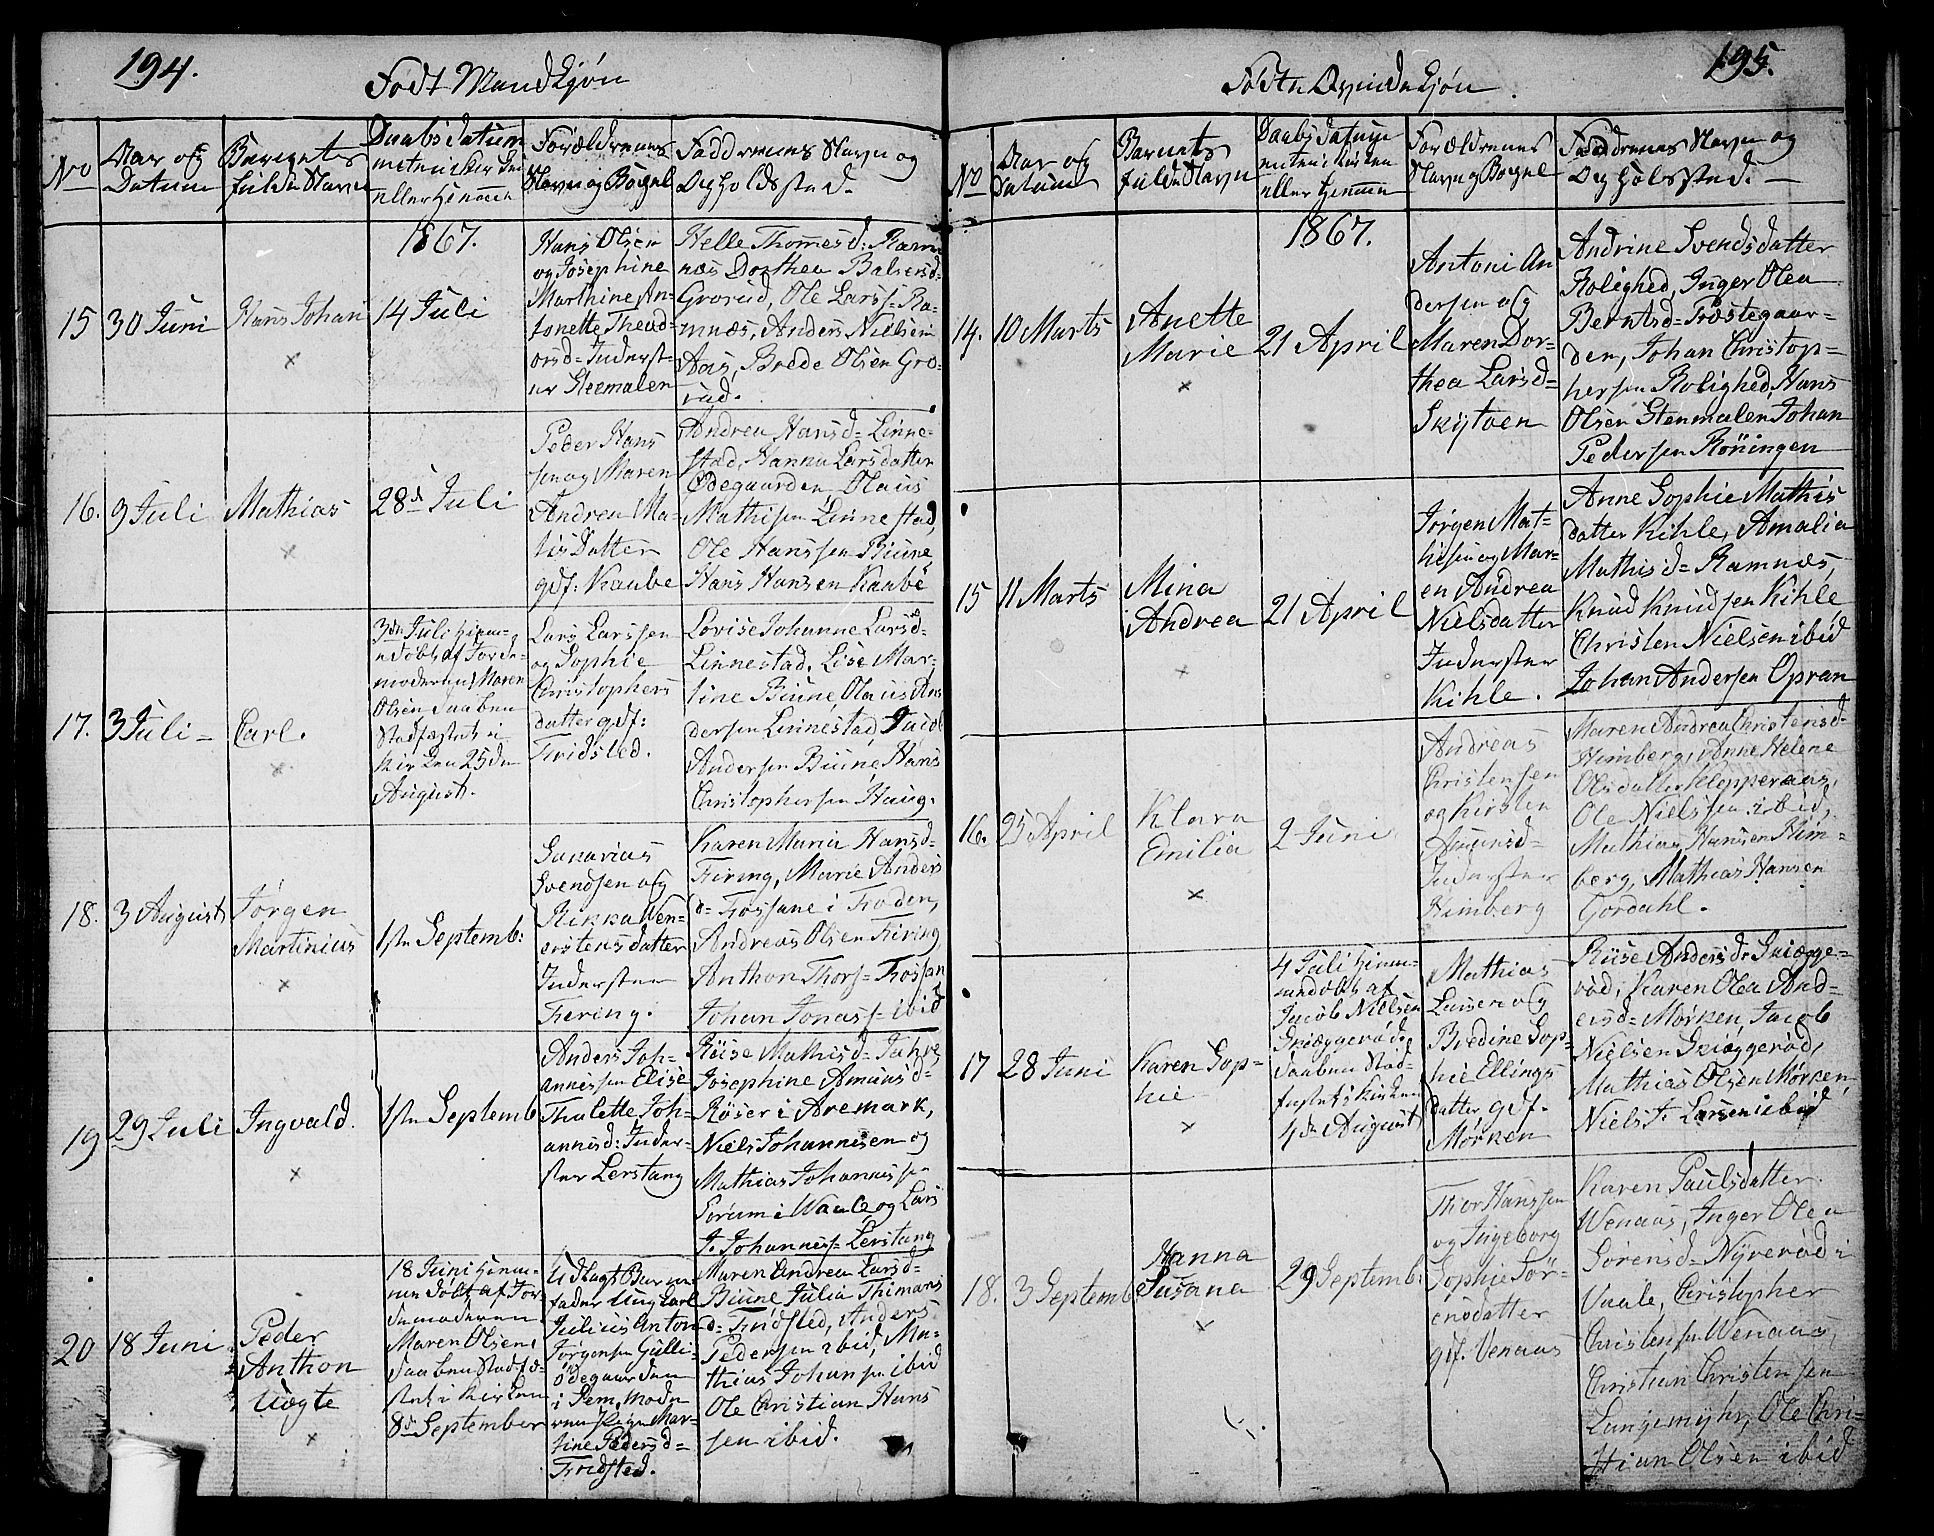 194.
Født Mandkjøn
No
Aar og
Datum
Barnets
fulde Navn
Daabsdatum
enten i Kirken
eller hjemme
Forældrenes
Navn og Bopel
Faddrenes Navn og
Opholdssted.
1867.
15
30 Juni
Hans Johan
14 Juli
Hans Olsen
og Josephine
Marthine An-
tonette Theod-
orsd= Inderst-
er Steemalen
Helle Thomesd: Ram-
næs Dorthea Balsersd=
Grorud, Ole Larss= Ra-
mnæs, Anders Nielsen
Aas, Brede Olsen Gro-
rud.
16.
9 Juli
Mathias
28d Juli
Peder Hans
sen og Maren
Andrea Ma-
tisdatter
gdf: Kaabe
Andrea Hansd= Linne-
stad, Hanna Larsdatter
Ødegaarden Olaus
Mathisen Linnestad,
Ole Hanssen Biune,
Hans Hansen Kaabe
17.
3 Juli-
Carl.
3die Juli hjem-
medøbt af Jorde-
moderen Maren
Olsen Daaben
Stadfæstet i
Kirken 25de
August.
Lars Larssen
og Sophie
Christophers
datter gdf:
Fridsted.
Lovise Johanne Larsd=
Linnestad, Lise Mar-
tine Biune, Olaus An-
dersen Linnestad, Jacob
Andersen Biune, Hans
Christophersen Haug.
18.
3 August
Jørgen
Martinius
1ste Septemb:
Sakarias
Svendsen og
Rikka Ven-
erstensdatter
Inderster
Fiering.
Karen Maria Hansd=
Firing, Marie Anders
d= Fossane i Froden,
Andreas Olsen Firing,
Anthon Thors= Fossan
Johan Jonass= ibid
19
29 Juli
Ingvald.
1ste Septemb
Anders Joh-
annessen Elise
Thalette Joh-
annisd: Inder-
ster Lerstang
Riise Mathisd= Jahre,
Josephine Amunsd=
Røser i Aremark,
Niels Johannisen og
Mathias Johanniss=
Sørum i Waale og Lars
J. Johanness= Lerstang
20
18 Juni
Peder
Anthon
Uægte
18 Juni hjem-
medøbt af Jor-
demoderen
Maren Olsen,
Daaben Stadfæ-
stet i Kirken
8de September
Udlagt Barne
fader Ung Carl
Julius Anton
Jørgensen Gulli-
Ødegaarden
i Sem, Mode
ren Pige Mar-
tine Pedersd=
Fridsted.
Maren Andrea Larsd=
Biune Julia Thimans
d= Fridsted, Anders
Pedersen ibid, Ma-
thias Johansen ibid
Ole Christian Hans
sen ibid.
195.
Født Qvindekjøn.
No
Aar og
Datum
Barnets
fulde Navn
Daabsdatum
enten i Kirken
eller hjemme
Forældrenes
Navn og Bopel
Faddrenes Navn og
Opholdssted.
1867.
14.
10 Marts
Anette
Marie
21 April
Antoni An
dersen og
Maren Dor-
thea Larsd=
Skytøen
Andrine Svendsdatter
Rolighed, Inger Olea
Berntsd= Præstegaar-
den, Johan Christop-
hersen Rolighed, Hans
Olsen Stenmalen Johan
Pedersen Røningen
15
11 Marts
Mina
Andrea
21 April
Jørgen Mat-
hisen og Mar-
en Andrea
Nielsdatter
Inderster
Kihle.
Anne Sophie Mathis
datter Kihle, Amalia
Mathisd= Ramnæs,
Knud Knudsen Kihle
Christen Nielsen ibid
Johan Andersen Opran
16.
25 April
Klara
Emilia
2 Juni
Andreas
Christensen
og Kirsten
Amunsd=
Inderster
Himberg
Maren Andrea Christensd=
Himberg, Anne Helene
Olsdatter Klopperaas,
Ole Nielssen ibid,
Mathias Hansen Him-
berg, Mathias Hansen
Gordahl.
17
28 Juni
Karen Sop-
hie
4 Juli hjem-
mendøbt af
Jacob Nielsen
Skiæggerød,
Daaben Stad-
fæstet i Kirken
4de August
Mathias
Larsen og
Bredine Sop-
hie Ellings
datter gdf.
Mørken
Riise Andersd= Skiægge-
rød, Karen Olea And-
ersd= Mørken, Jacob
Nielsen Skiæggerød,
Mathias Olsen Mørken,
Niels F. Larsen ibid
18.
3 Septemb
Hanna
Susana
29 Septemb:
Thor Hanssen
og Ingeborg
Sophie Sør-
ensdatter
gf. Venaas
Karen Paulsdatter
Wenaas, Inger Olea
Sørensd= Nyrerød i
Vaale, Christopher
Christensen Wenaas,
Christian Christensen
Langemyhr, Ole Chri-
stian Olsen ibid